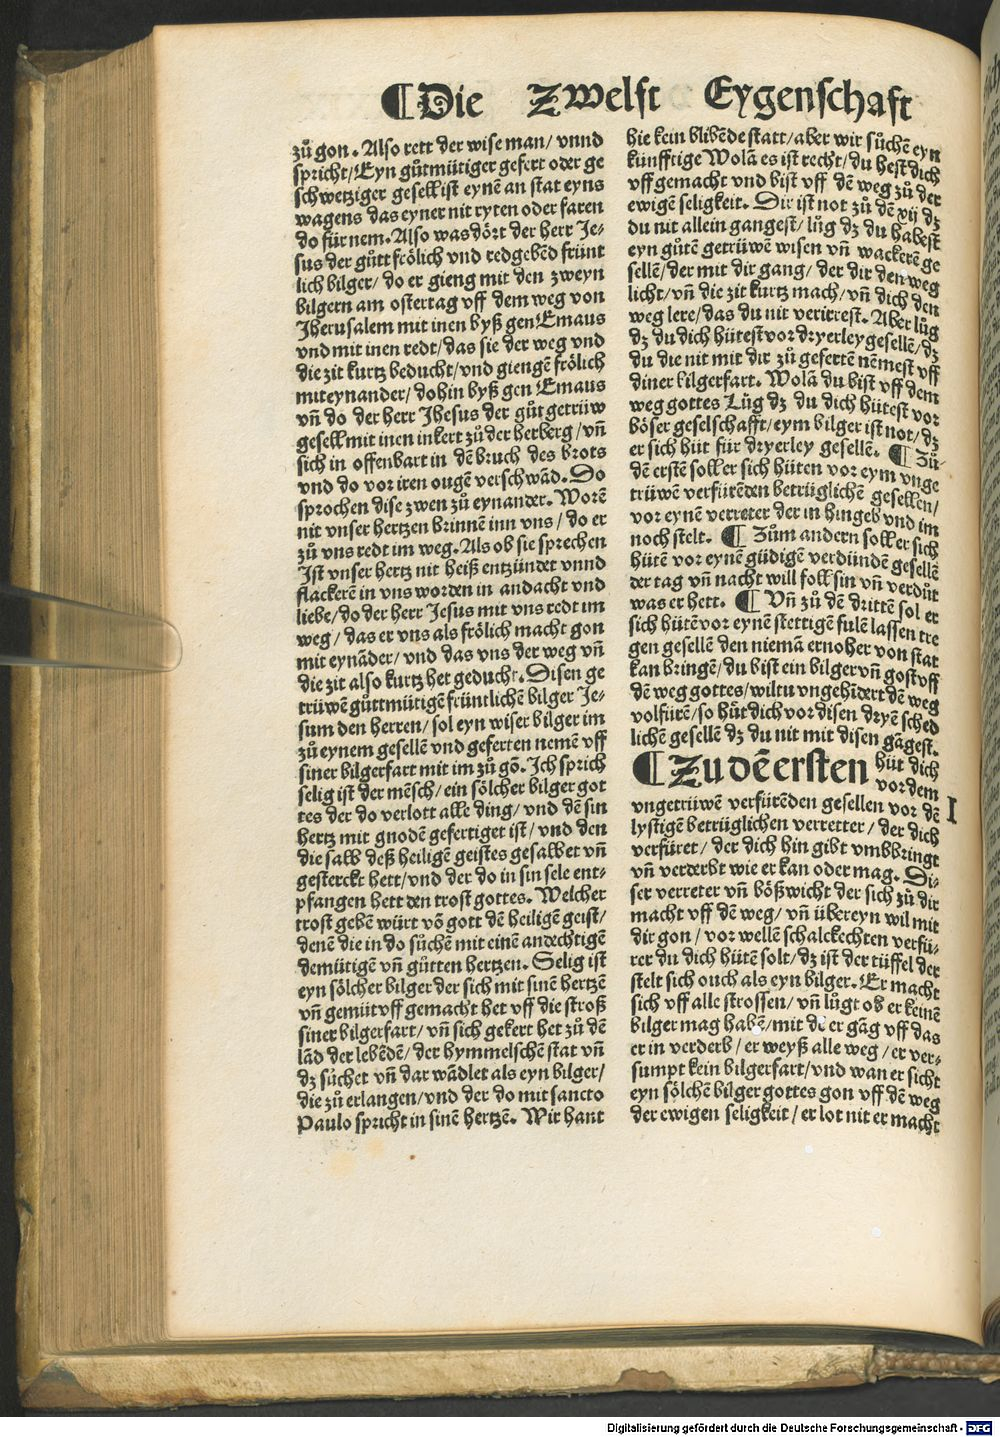 ¶Die Zwelft Eygenschaft
zuͦ gon. Also rett der wise man/ vnnd
spricht/ Eyn guͦtmuͤtiger gefert oder ge
schwetziger gesell ist eynē an stat eyns
wagens das eyner nit ryten oder faren
do für nem. Also was doͤrt der herr Je-
sus der guͦtt froͤlich vnd redgebēd früntlich
lich bilger/ do er gieng mit den zweyn
bilgern am ostertag vff dem weg von
Jherusalem mit inen byß gen Emaus
vnd mit inen redt/ das sie der weg vnd
die zit kurtz beducht/ vnd giengē froͤlich
mit eynander/ dohin byß gen Emaus
vn̄ do der herr Jhesus der guͦt getrüw
gesell mit inen inkert zuͦ der herberg/ vn̄
sich in offenbart in dē bruch des brots
vnd do vor iren ougē verschwād. Do
sprochen dise zwen zuͦ eynander. Worē
nit vnser hertzen brinnē inn vns/ do er
zuͦ vns redt im weg. Als ob sie sprechen
Ist vnser hertz nit heiß entzündet vnnd
flackerē in vns worden in andacht vnd
liebe/ do der herr Jesus mit vns redt im
weg/ das er vns als froͤlich macht gon
mit eynāder/ vnd das vns der weg vn̄
die zit also kurtz het geducht. Disen ge
trüwē guͦttmuͤtigē früntlichē bilger Je-
sum den herren/ sol eyn wiser bilger im
zuͦ eynem gesellē vnd geferten nemē vff
siner bilgerfart mit im zuͦ gō. Ich sprich
selig ist der mēsch/ ein soͤlcher bilger got
tes der do verlott alle ding/ vnd dē sin
hertz mit gnodē gefertiget ist/ vnd den
die salb deß heiligē geistes gesalbet vn̄
gesterckt hett/ vnd der do in sin sele ent-
pfangen hett den trost gottes. Welcher
trost gebē würt vō gott dē heiligē geist/
denē die in do suͦchē mit einē andechtigē
demuͤtigē vn̄ guͦtten hertzen. Selig ist
eyn soͤlcher bilger der sich mit sinē hertzē
vn̄ gemuͤt vff gemacht het vff die stroß
siner bilgerfart/ vn̄ sich gekert het zuͦ dē
lād der lebēdē/ der hymmelschē stat vn̄
dz suͦchet vn̄ dar wādlet als eyn bilger/
die zuͦ erlangen/ vnd der do mit sancto
Paulo spricht in sinē hertzē. Wir hant
hie kein blibēde statt/ aber wir suͦchē eyn
künfftige Wolā es ist recht/ du hest dich
vff gemacht vnd bist vff dē weg zuͦ der
ewigē seligkeit. Dir ist not zuͦ dē xij dz
du nit allein gangest/ luͦg dz du habest
eyn guͦtē getrüwē wisen vn̄ wackerē ge
sellē/ der mit dir gang/ der dir den weg
licht/ vn̄ die zit kurtz mach/ vn̄ dich den
weg lere/ das du nit verirrest. Aber luͦg
dz du dich huͤtest vor dryerley gesellē/ dz
du die nit mit dir zuͦ gefertē nēmest vff
diner bilgerfart. Wolā du bist vff dem
weg gottes Luͦg dz du dich huͤtest vor
boͤser geselschafft/ eym bilger ist not/ dz
er sich huͤt für dryerley gesellē. ¶ Zuͦ-
dē erstē soll er sich huͤten vor eym vnge
trüwē verfürēden betrüglichē gesellen/
vor eynē verreter der in hingeb vnd im
noch stelt. ¶ Zuͦm andern soll er sich
huͤtē vor eynē güdigē verdündē gesellē
der tag vn̄ nacht will foll sin vn̄ verduͦt
was er hett. ¶ Vn̄ zuͦ dē drittē sol er
sich huͤtē vor eynē stettigē fulē lassen tre
gen gesellē den niemā ernoher von stat
kan bringē/ du bist ein bilger vn̄ gost vff
dē weg gottes/ wiltu vngehidert dē weg
volfürē/ so huͤt dich vor disen dryē sched
lichē gesellē dz du nit mit disen gāgest.
¶Zu dē ersten huͤt dich
vor dem
vngetrüwē verfürēden gesellen vor dē
lystigē betrüglichen verretter/ der dich
verfüret/ der dich hin gibt vmbbringt
vn̄ verderbt wie er kan oder mag. Di-
ser verreter vn̄ boͤßwicht der sich zuͦ dir
macht vff dē weg/ vn̄ übereyn wil mit
dir gon/ vor wellē schalckechten verfü-
rer du dich huͤtē solt/ dz ist der tüffel der
stelt sich ouch als eyn bilger. Er macht
sich vff alle strossen/ vn̄ luͦgt ob er keinē
bilger mag habē/ mit dē er gāg vff das
er in verderb/ er weyß alle weg/ er ver-
sumpt kein bilgerfart/ vnd wan er sicht
eyn soͤlchē bilger gottes gon vff dē weg
der ewigen seligkeit/ er lot nit er macht
I
Digitalisierung gefördert durch die Deutsche Forschungsgemeinschaft - DFG